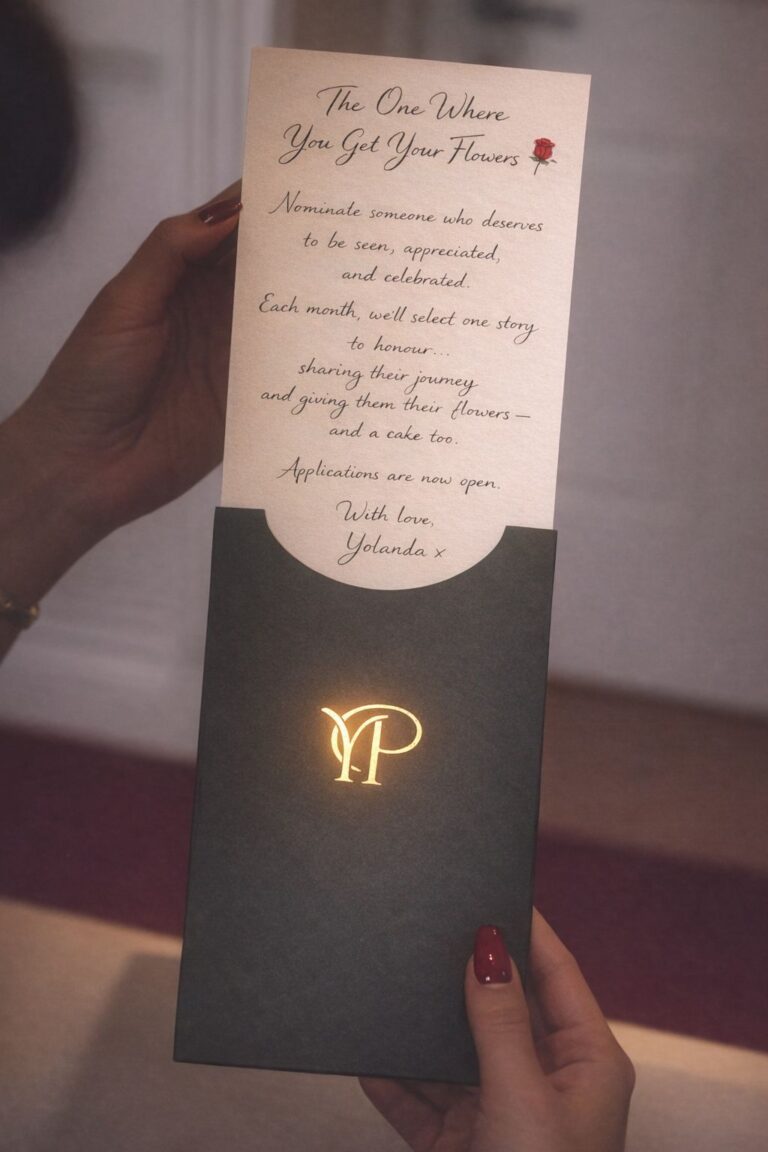 The One Where
You Get Your Flowers
Nominate someone who deserves
to be seen, appreciated,
and celebrated.
Each month, we'll select one story
to honour...
sharing their journey
and giving them their flowers —
and a cake too.
Applications are now open.
With love,
Yolanda x
YP